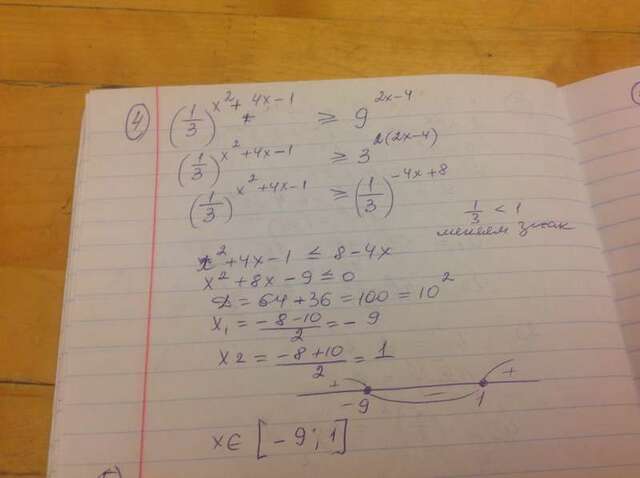 4. (1/3)^(x²+4x-1) ≥ 9^(2x-4)
(1/3)^(x²+4x-1) ≥ 3^(2(2x-4))
(1/3)^(x²+4x-1) ≥ (1/3)^(-4x+8)
1/3 < 1
меняем знак
x²+4x-1 ≤ 8-4x
x²+8x-9 ≤ 0
D = 64+36 = 100 = 10²
x₁ = (-8-10)/2 = -9
x2 = (-8+10)/2 = 1
+ - +
-9 1
x ∈ [-9; 1]